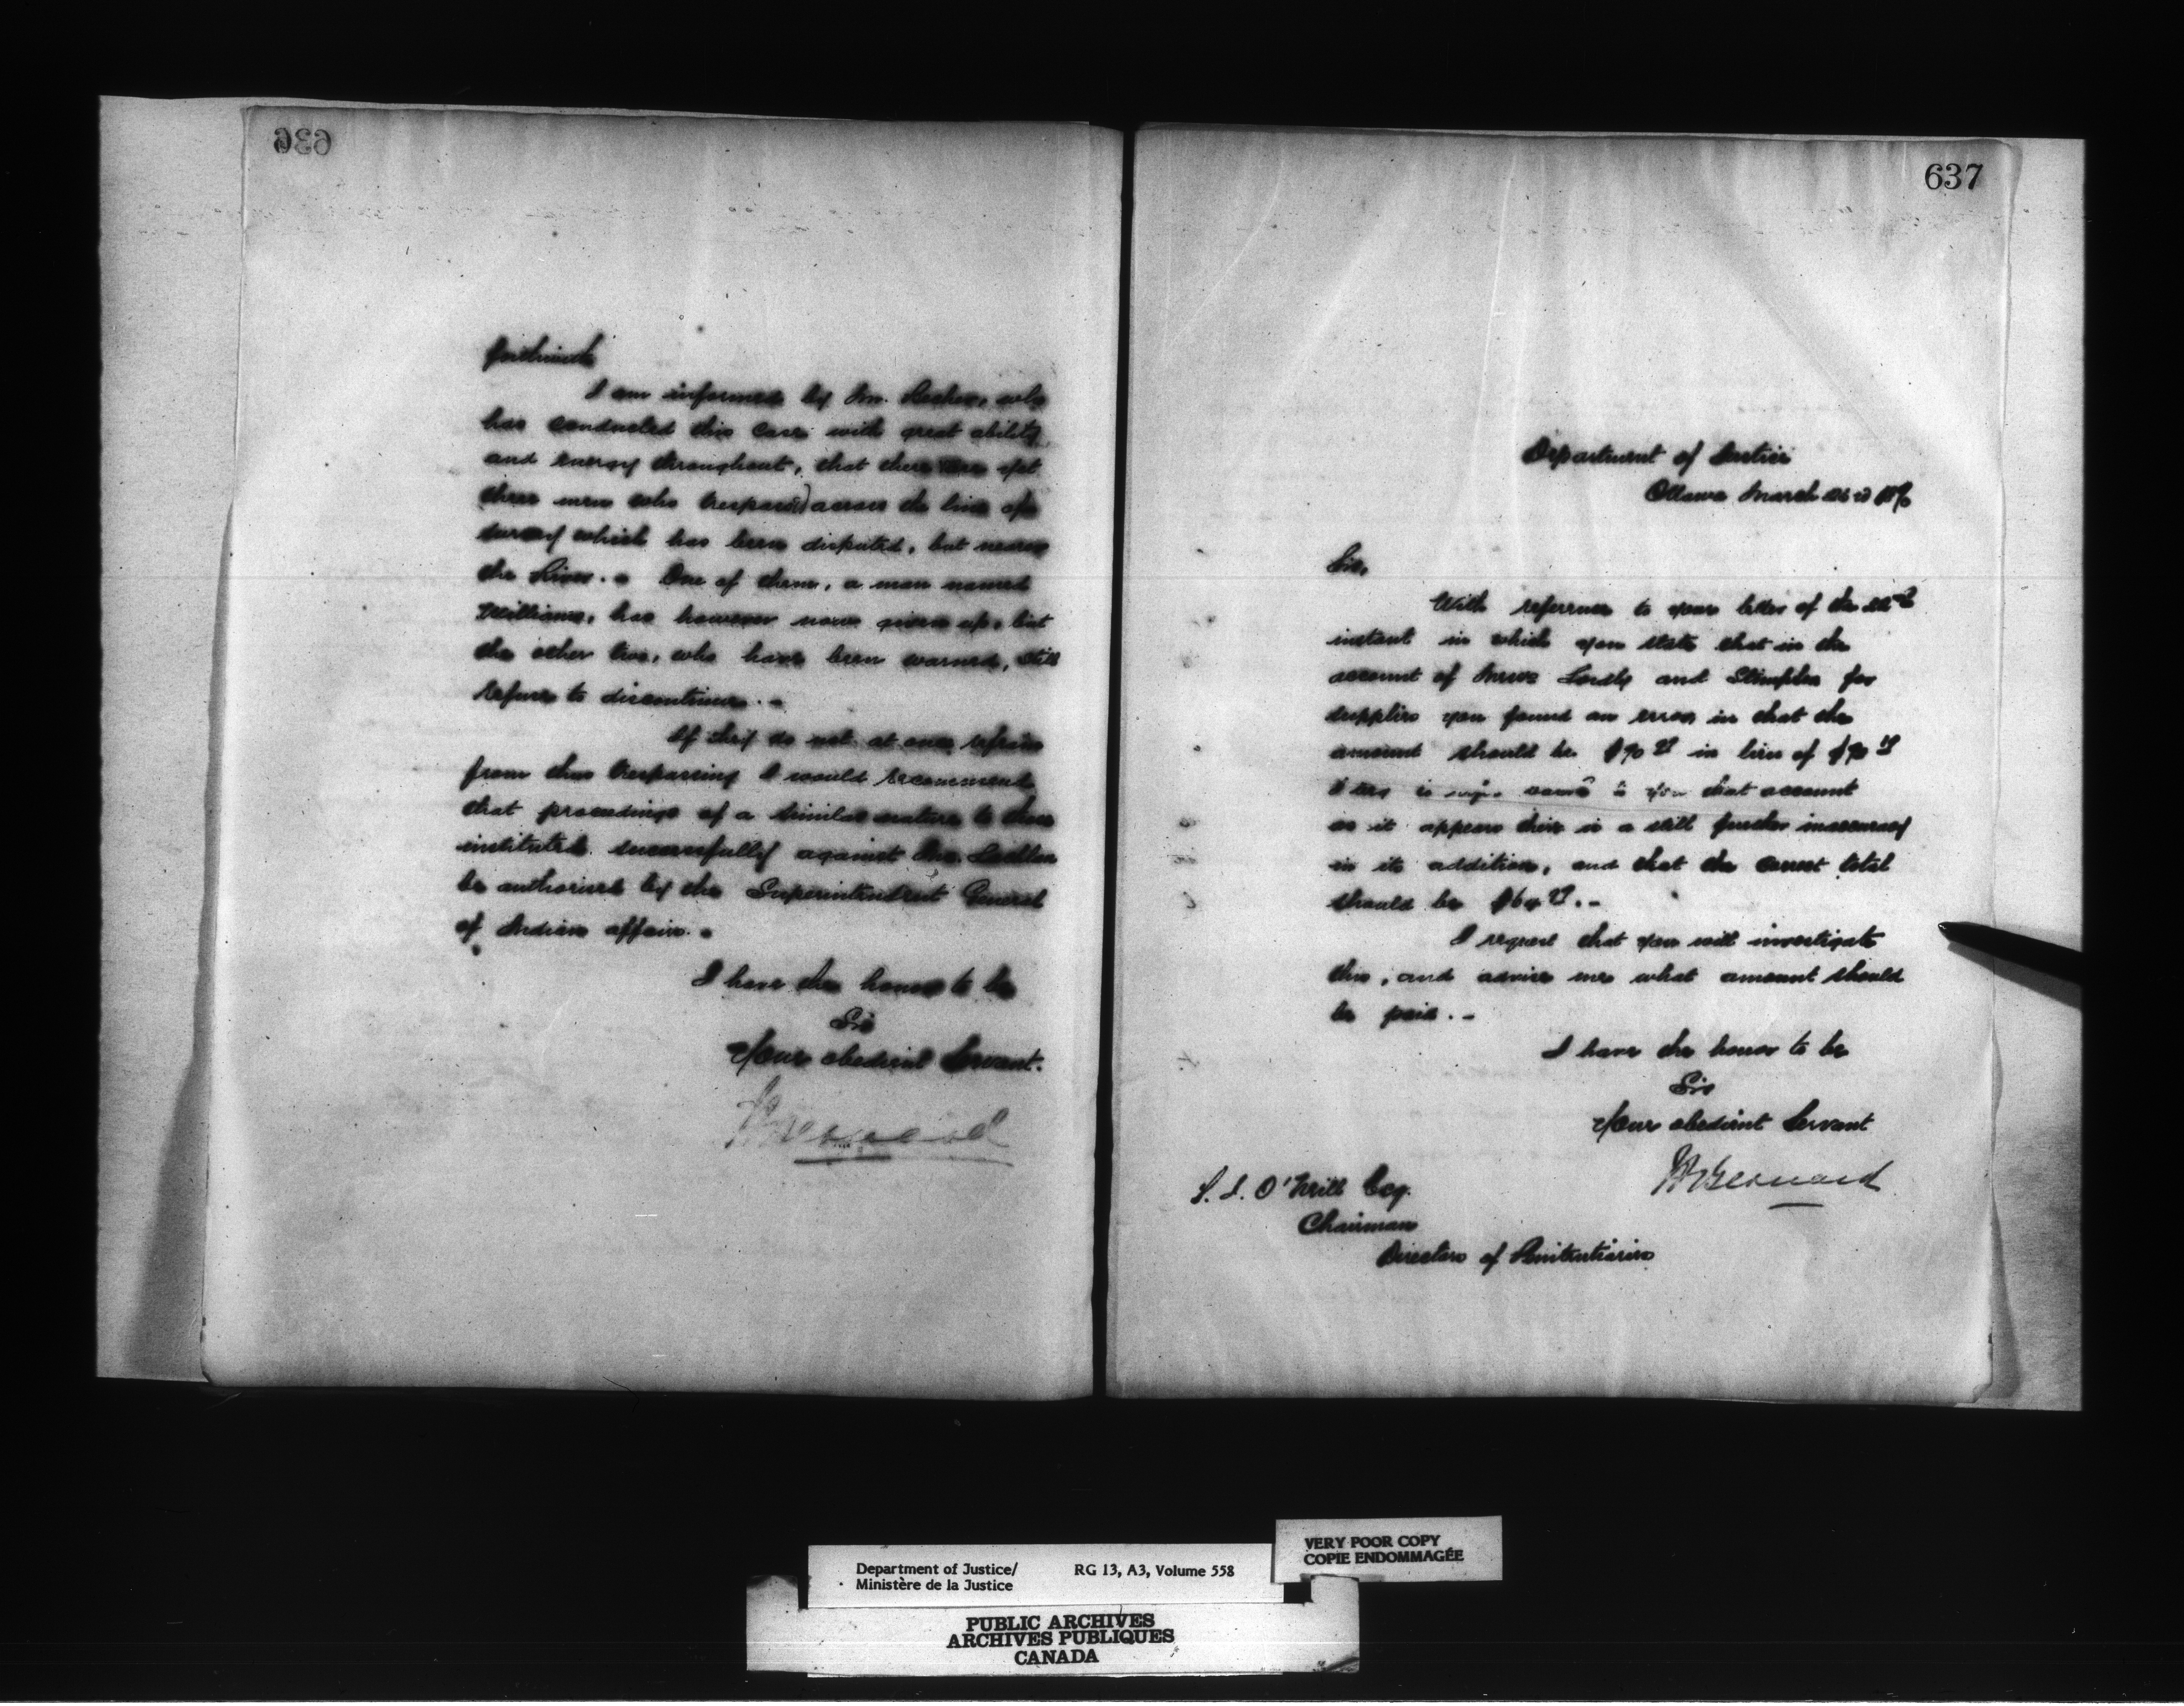 636
forthwith
I am informed by Mr. who
has conducted this case with great ability
and energy throughout, that there are yet
three men who trespass across the line of
survey which has been disputed, but nearer
the River. - One of them, a man named
Williams, has however now given up, but
the other two, who have been warned, still
refuse to discontinue. -
If they do not at once refrain
from thus trespassing I would recommend
that proceedings of a similar nature to those
instituted successfully against
be authorised by the Superintendent General
of Indian affairs. -
I have the honor to be
Sir
Your obedient Servant.
H Bernard
637
Department of Justice
Ottawa March
Sir,
With reference to your letter of the
instant in which you state that in the
account of Messrs Lordly and Stimpson for
supplies you found an error in that the
amount should be $70 in lieu of $70
I beg to you that account
as it appears there is a still further inaccuracy
in its addition, and that the correct total
should be
I request that you will investigate
this, and advise me what amount should
be paid. -
I have the honor to be
Sir
Your obedient Servant
H Bernard
O'Neill Esq.
Chairman
Directors of Penitentiaries
VERY POOR COPY
COPIE ENDOMMAGÉE
Department of Justice/ RG 13, A3, Volume 558
Ministère de la Justice
PUBLIC ARCHIVES
ARCHIVES PUBLIQUES
CANADA